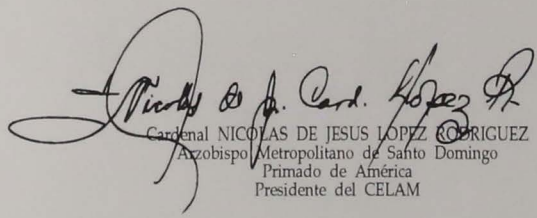 + Nicolás de Js. Card. López R.
Cardenal NICOLAS DE JESUS LOPEZ RODRIGUEZ
Arzobispo Metropolitano de Santo Domingo
Primado de América
Presidente del CELAM